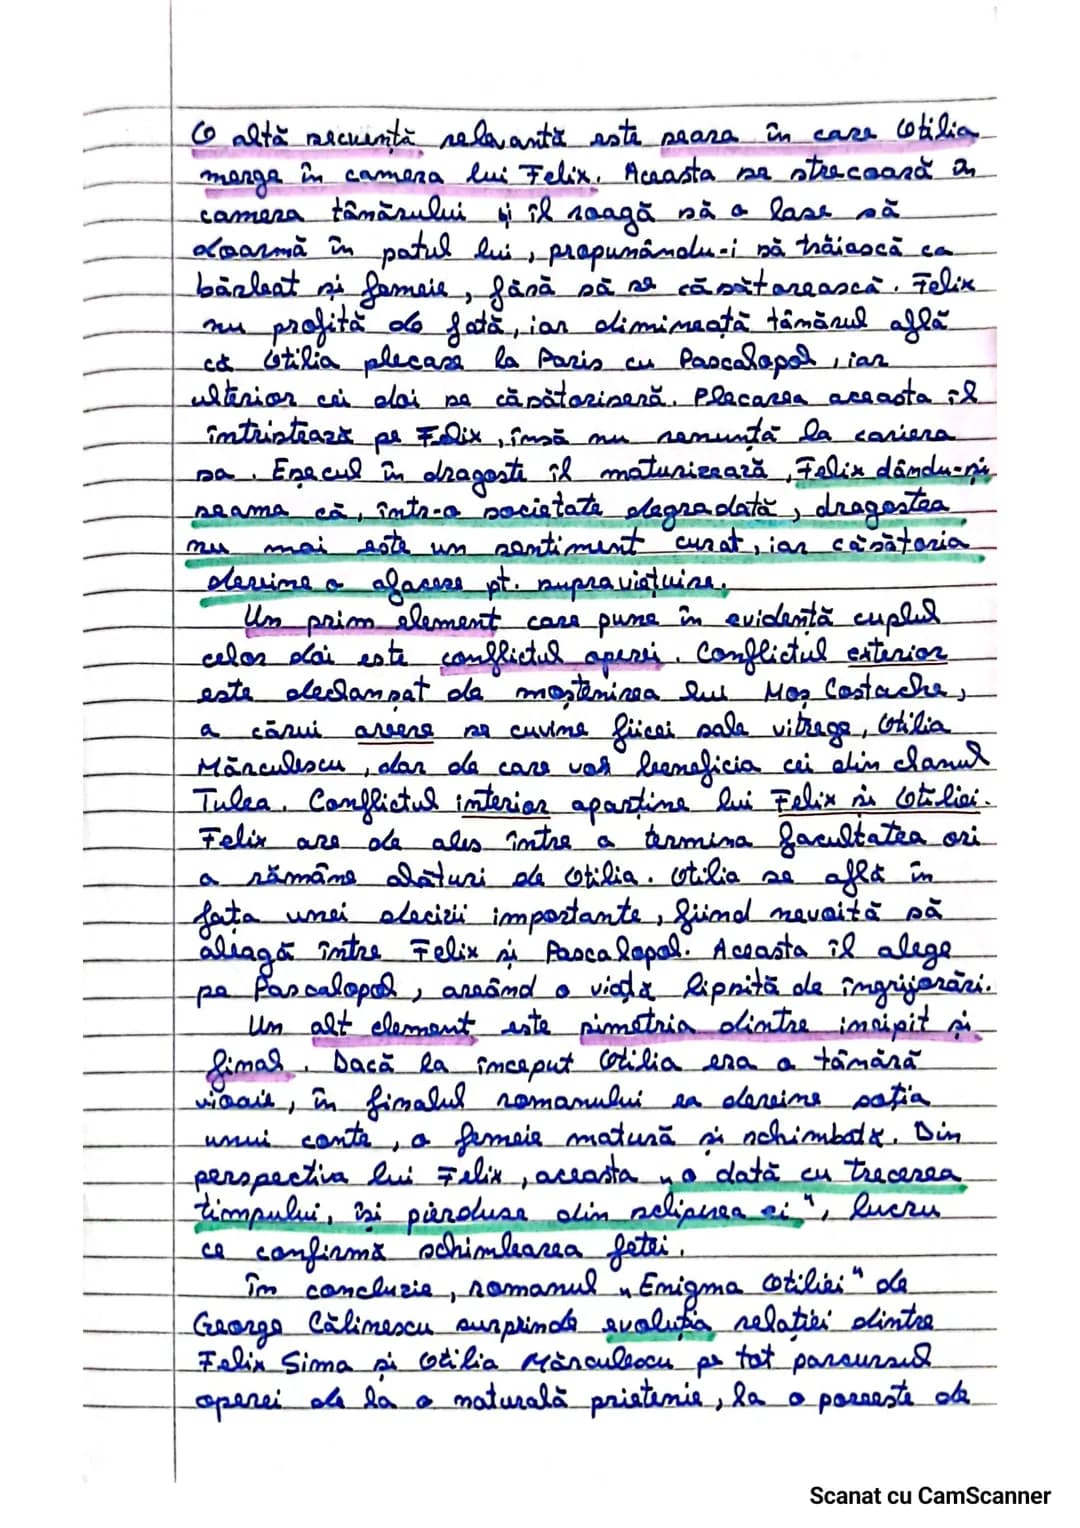 O altă secvență relevantă este seara în care Otilia
merge în camera lui Felix. Aceasta se strecoară în
camera tânărului și îl roagă să o lase să
doarmă în patul lui, propunându-i să trăiască ca
bărbat și femeie, fără să se căsătorească. Felix
nu profită de fată, iar dimineață tânărul află
că Otilia plecase la Paris cu Pascalopol, iar
ulterior cei doi se căsătoriseră. Plecarea aceasta îl
întristează pe Felix, însă nu renunță la cariera
sa. Eșecul în dragoste îl maturizează, Felix dându-și
seama că, într-o societate degradată, dragostea
nu mai este un sentiment curat, iar căsătoria
devine o afacere pt. supraviețuire.
Un prim element care pune în evidență cuplul
celor doi este conflictul operei. Conflictul exterior
este declanșat de moștenirea lui Moș Costache,
a cărui avere se cuvine fiicei sale vitrege, Otilia
Mărculescu, dar de care vor beneficia cei din clanul
Tulea. Conflictul interior aparține lui Felix și Otiliei.
Felix are de ales între a termina facultatea ori
a rămâne alături de Otilia. Otilia se află în
fața unei decizii importante, fiind nevoită să
aleagă între Felix și Pascalopol. Aceasta îl alege
pe Pascalopol, având o viață lipsită de îngrijorări.
Un alt element este simetria dintre incipit și
final. Dacă la început Otilia era o tânără
vioaie, în finalul romanului ea devine soția
unui conte, o femeie matură și schimbată. Din
perspectiva lui Felix, aceasta „o dată cu trecerea
timpului, își pierduse din sclipirea ei", lucru
ce confirmă schimbarea fetei.
În concluzie, romanul „Enigma Otiliei" de
George Călinescu surprinde evoluția relației dintre
Felix Sima și Otilia Mărculescu pe tot parcursul
operei de la o naturală prietenie, la o poveste de
Scanat cu CamScanner